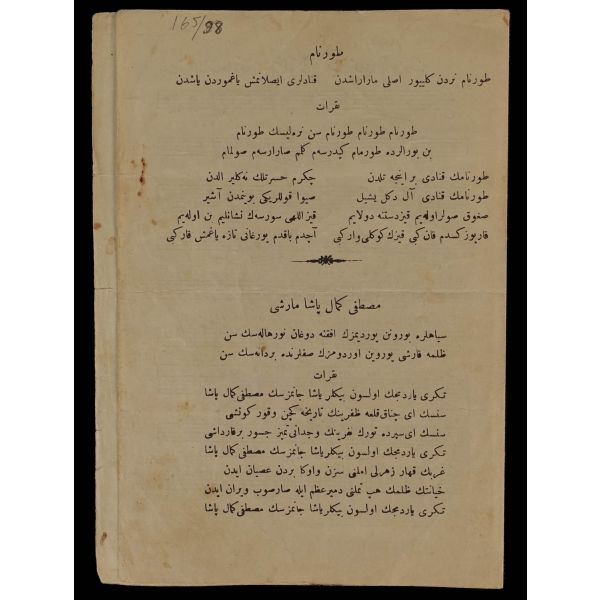 165/98
طورنام
طورنام نردن كلیور اصلی ماراراشدن قنادلری ایصلانمش یاغموردن یاشدن
نقرات
طورنام طورنام طورنام سن نره‌لیسك طورنام
بن بورالرده طورمام كیدرسه‌م كلمم صارارسه‌م صولمام
طورنامك قنادی بر اینجه تلدن چكرم حسرتلك نه‌كلیر الدن
طورنامك قنادی آل دكل یشیل صیوا قوللریكی بوینمدن آشیر
صغوق صولر اوله‌یم قیزدستنه دولایم قیز اللهی سورسه‌ك نشانلیم بن اوله‌یم
قارپوز كسدم قان كبی قیزك كوكلی وار كبی آچدم باقدم یورغانی تازه یاغمش قار كبی
مصطفی كمال پاشا مارشی
سیاهلره بورونن یوردیمزك افقنه دوغان نورهاله‌سك سن
ظلمه قارشی یوروین اوردومزك صفلرنده بردانه‌سك سن
نقرات
تكری یاردمجك اولسون بیكلر یاشا جانمزسك مصطفی كمال پاشا
سنسك ای چناق قلعه ظفرینك تاریخه كچن وقور كونشی
سنسك ای سیرده تورك نفرینك وجدانی تمیز جسور برقارداشی
تكری یاردمجك اولسون بیكلر یاشا جانمزسك مصطفی كمال پاشا
غربك قهار زهرلی املنی سزن واوكا بردن عصیان ایدن
خیانتك ظلمك هپ تملنی دمیر عظم ایله صارصوب ویران ایدن
تكری یاردمجك اولسون بیكلر یاشا جانمزسك مصطفی كمال پاشا